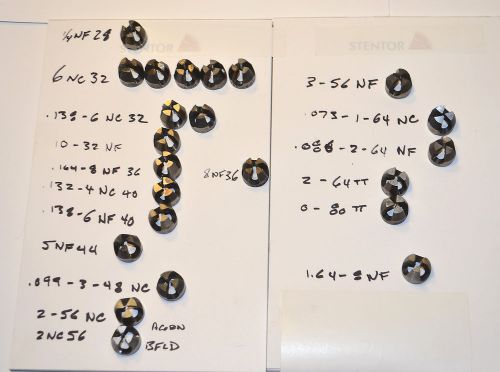 STENTOR
1/4 NF 28
6 NC 32
.138-6 NC 32
10-32 NF
.164-8 NF 36
8NF36
.132-4 NC 40
.138-6 NF 40
5NF44
.099-3-48 NC
2-56 NC ACORN
2NC56 BFLD
STENTOR
3-56 NF
.073-1-64 NC
-2-64 NF
2-64
0-80
1.64-8 NF